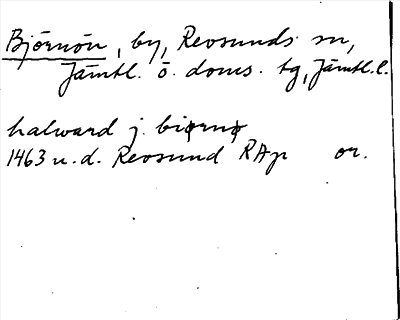 Björnön, by, Revsunds sn,
Jämtl. ö. doms. tg, Jämtl.l.
halward j. biørnø
1463 u.d. Revsund RAp or.